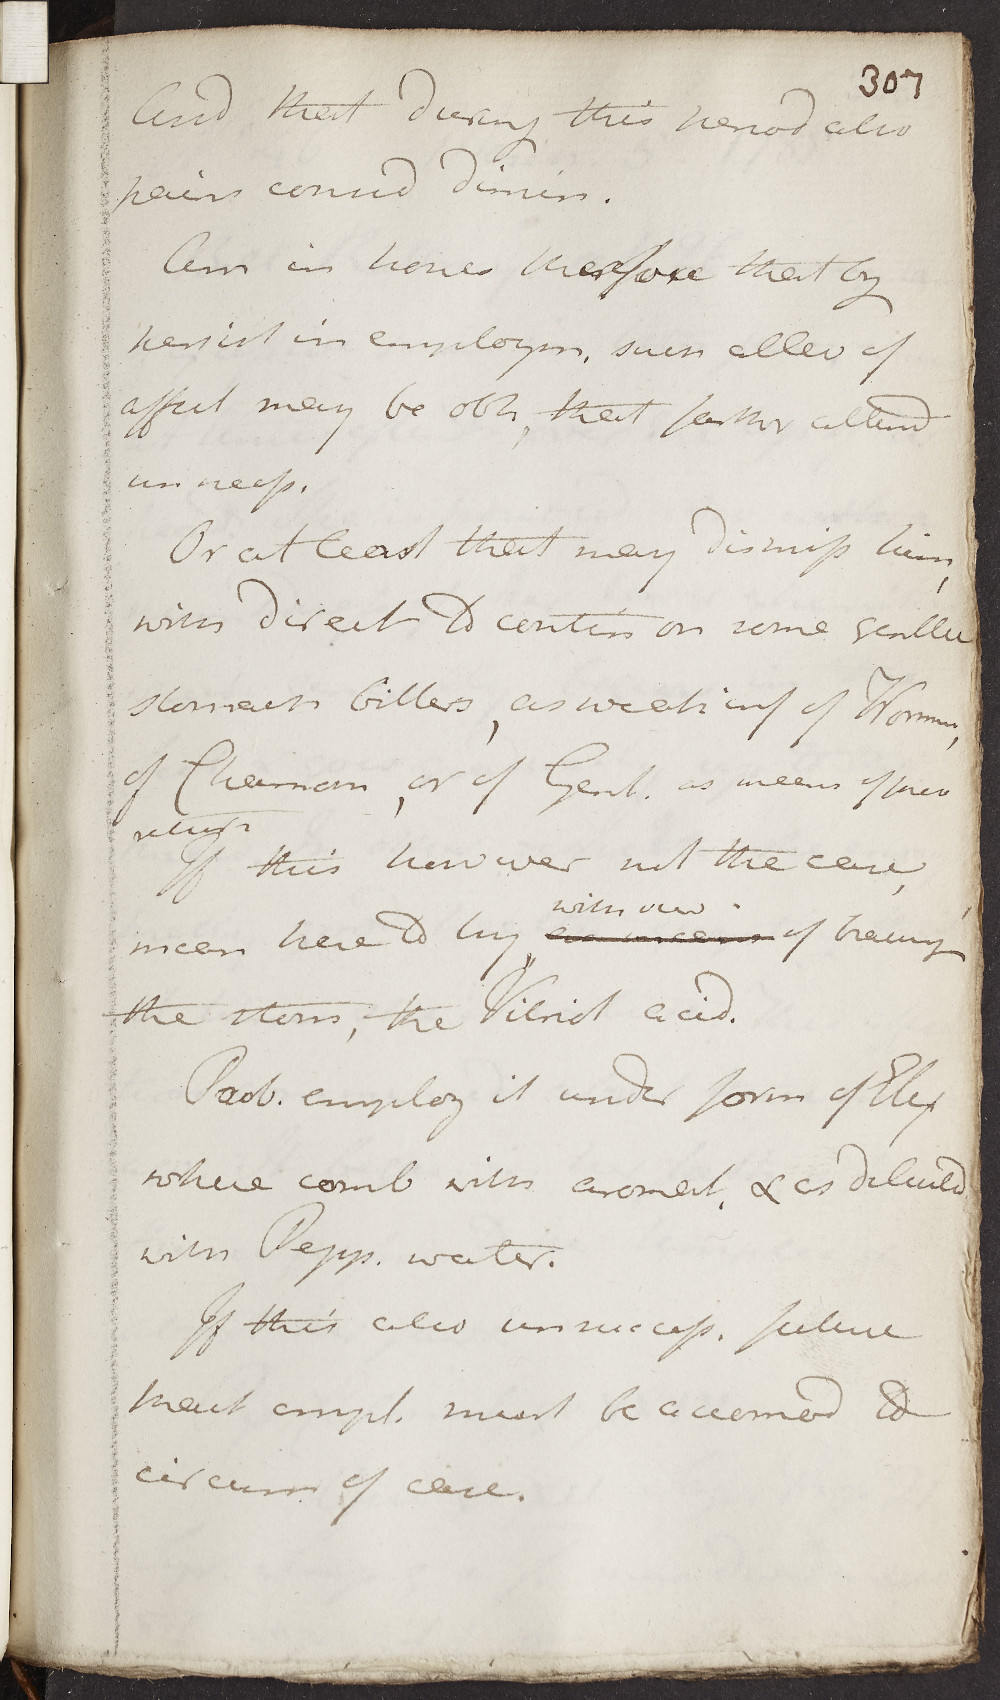 307
And that during this period also
pain consid dimin.
Am in hopes therefore that by
persist in employm, such allev of
affect may be obt, that farther attend
unnecess.
Or at least that may dismiss him,
with direct to contin on some gentle
stomach bitters, as weak inf of Wormw,
of Chamom, or of Gent. as means of prev
return
If this however not the case,
mean here to try with view of bracing
the stom, the Vitriol acid.
Prob. employ it under form of Elix
where comb with aromat, & as diluted
with Pepp. water.
If this also unsuccess. future
treat empl. must be accomod to
circum of case.